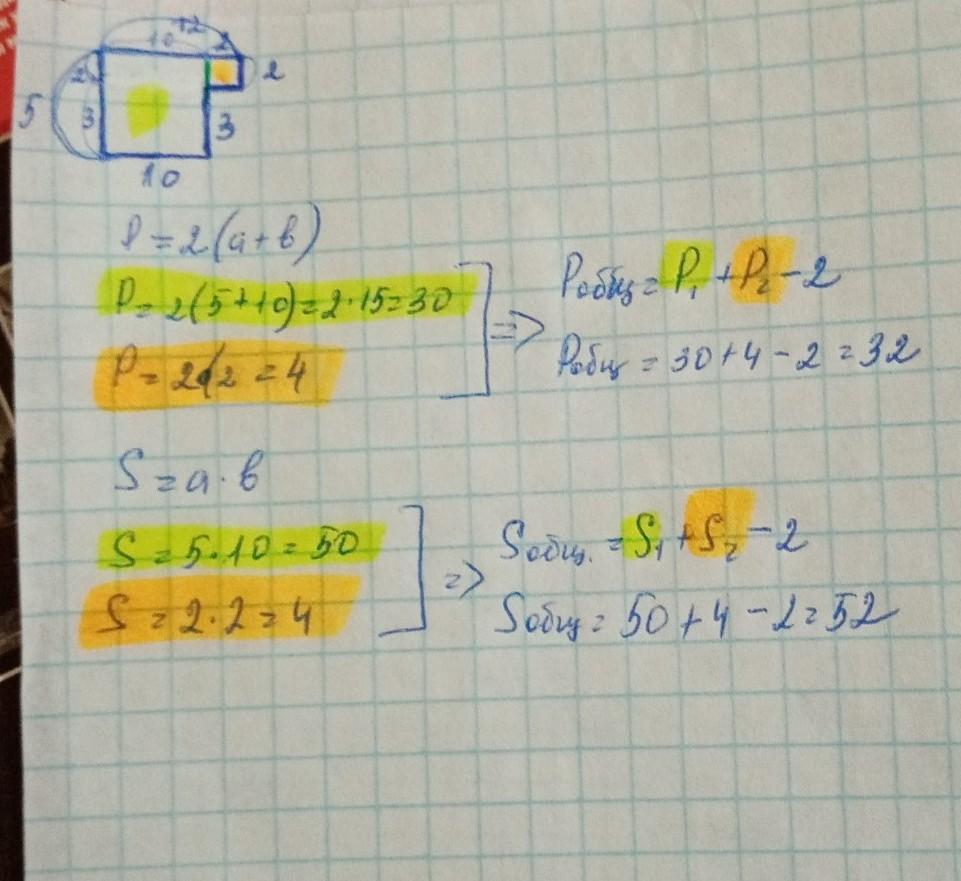 +2
10 2
2 2
5 3 3
10
P = 2(a + b)
P = 2(5+10) = 2·15 = 30
P = 2·2 = 4
=>
Pобщ = P₁ + P₂ - 2
Pобщ = 30 + 4 - 2 = 32
S = a · b
S = 5·10 = 50
S = 2·2 = 4
=>
Sобщ. = S₁ + S₂ - 2
Sобщ = 50 + 4 - 2 = 52